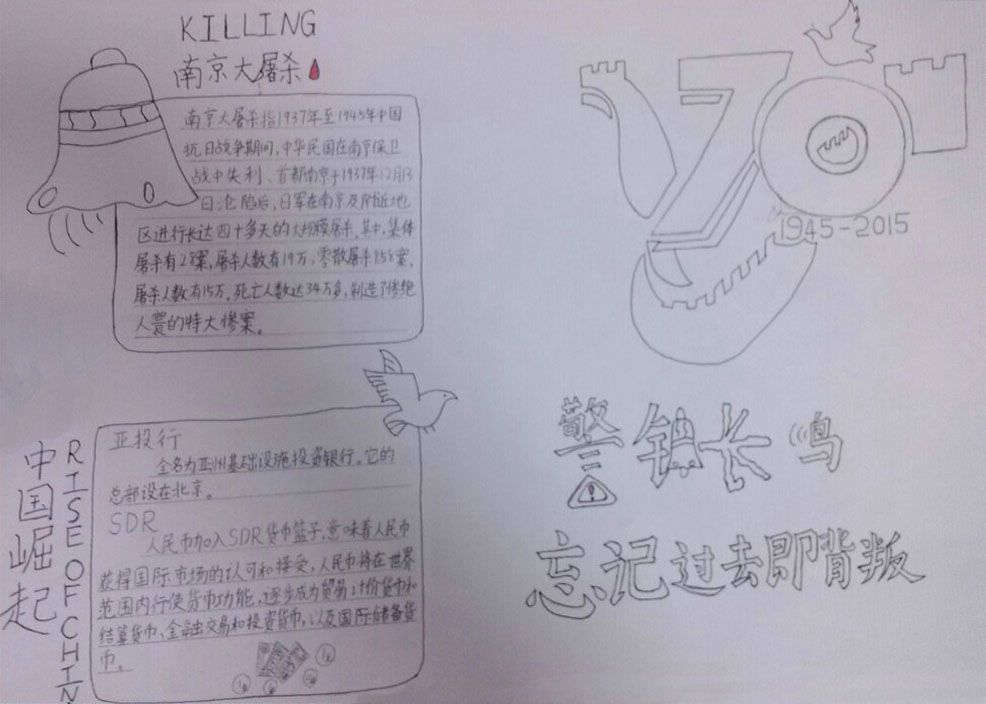 KILLING
南京大屠杀
南京大屠杀指1937年至1945年中国
抗日战争期间,中华民国在南京保卫
战中失利、首都南京于1937年12月13
日沦陷后,日军在南京及附近地
区进行长达四十多天的大规模屠杀。其中,集体
屠杀有28案,屠杀人数有19万;零散屠杀858案,
屠杀人数有15万。死亡人数达34万多,制造了惨绝
人寰的特大惨案。
中国崛起
RISE OF CHIN
亚投行
全名为亚洲基础设施投资银行。它的
总部设在北京。
SDR
人民币加入SDR货币篮子,意味着人民币
获得国际市场的认可和接受,人民币将在世界
范围内行使货币功能,逐步成为贸易计价货币和
结算货币、金融交易和投资货币,以及国际储备货
币。
70
1945-2015
警钟长鸣
忘记过去即背叛